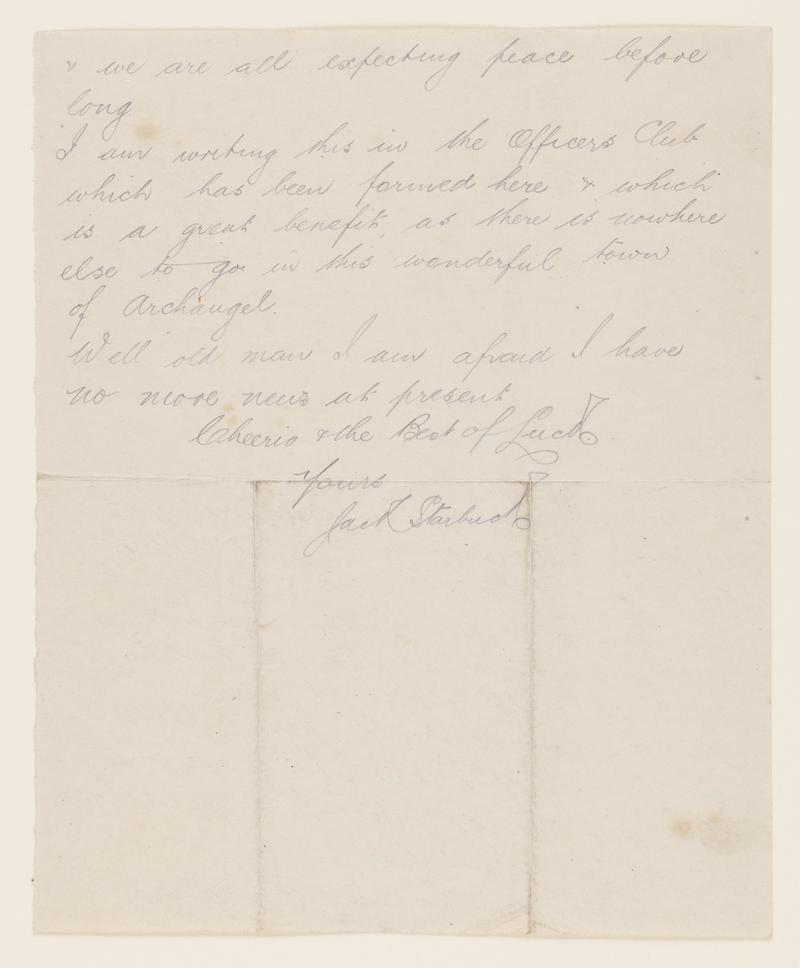 & we are all expecting peace before
long.
I am writing this in the Officers Club
which has been formed here & which
is a great benefit, as there is nowhere
else to go in this wonderful town
of Archangel.
Well old man I am afraid I have
no more news at present
Cheerio & the Best of Luck.
Yours
Jack Starbuck